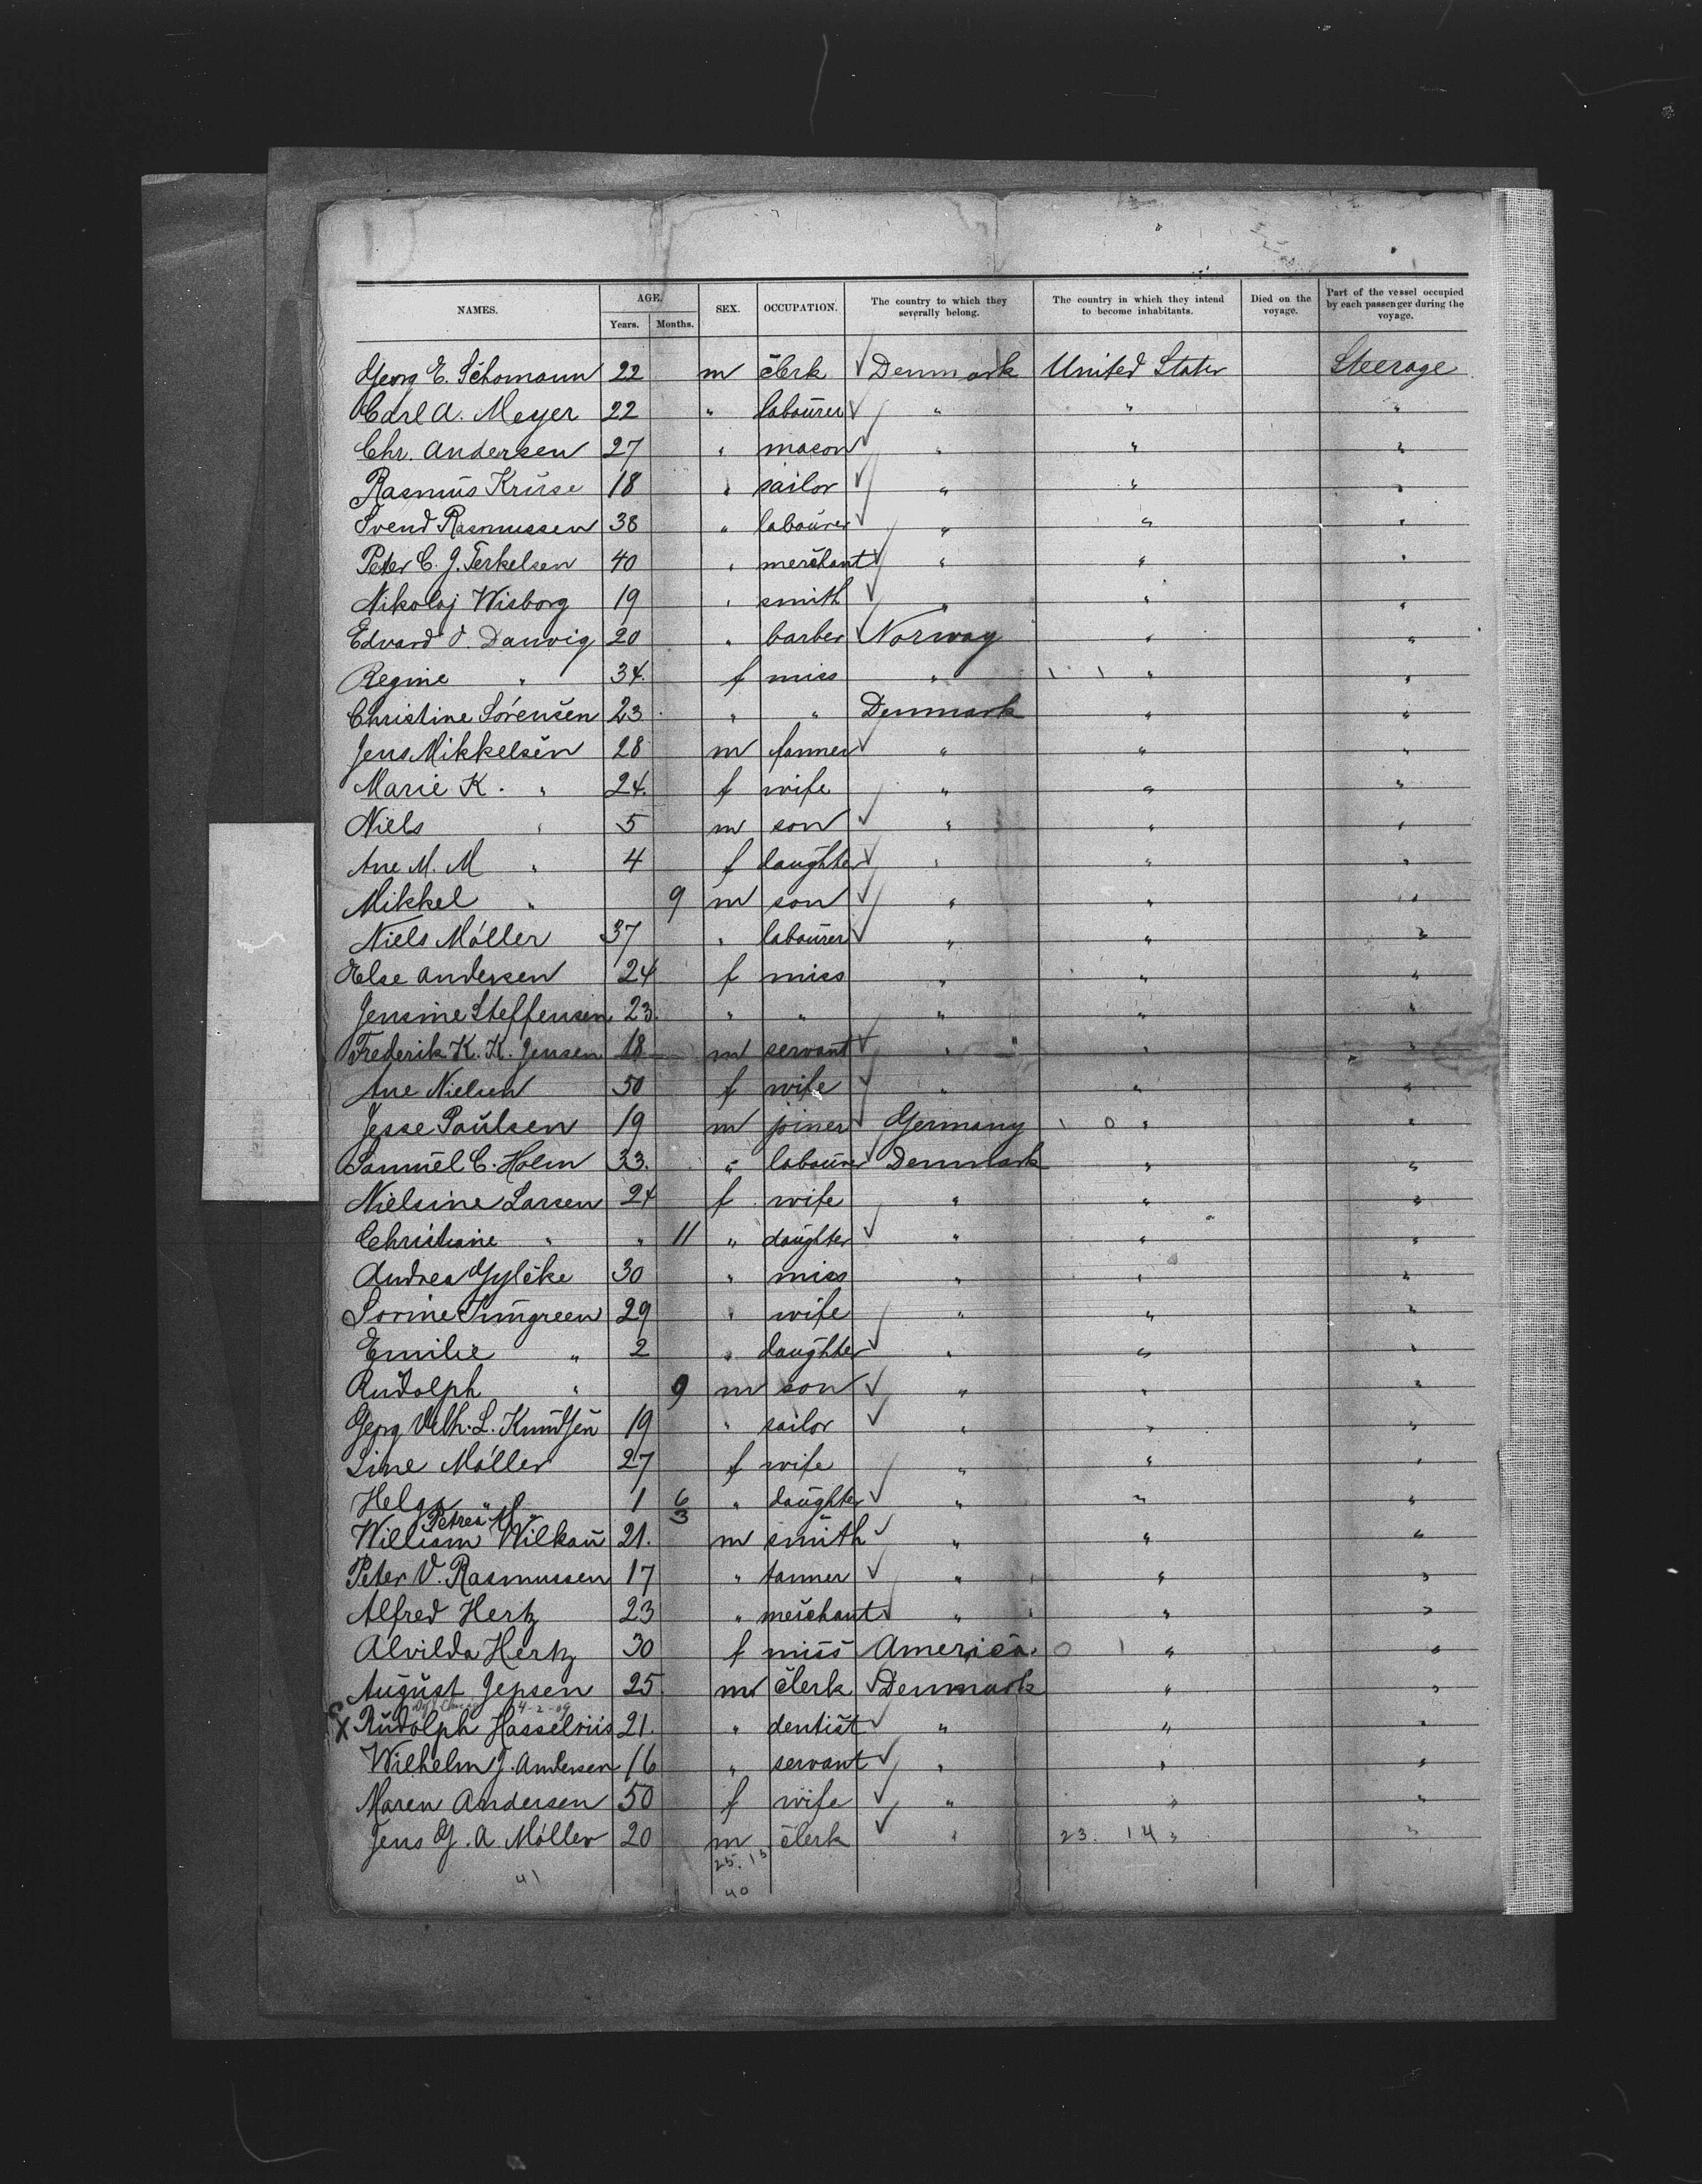 NAMES. AGE. SEX. OCCUPATION. The country to which they severally belong. The country in which they intend to become inhabitants. Died on the voyage. Part of the vessel occupied by each passenger during the voyage.
Years. Months.
Georg E. Schomann 22 m clerk ✓ Denmark United States Steerage
Carl A. Meyer 22 " labourer ✓ " " "
Chr. Andersen 27 " mason ✓ " " "
Rasmus Kruse 18 " sailor ✓ " " "
Svend Rasmussen 38 " labourer ✓ " " "
Peter C. J. Terkelsen 40 " merchant ✓ " " "
Nikolaj Wisborg 19 " smith ✓ " " "
Edvard O. Danvig 20 " barber ✓ Norway " "
Regine " 34. f miss " 1 1 " "
Christine Sörensen 23 " " Denmark " "
Jens Mikkelsen 28 m farmer ✓ " " "
Marie K. " 24. f wife " " "
Niels " 5 m son ✓ " " "
Ane M. M " 4 f daughter ✓ " " "
Mikkel " 9 m son ✓ " " "
Niels Möller 37 " labourer ✓ " " "
Else Andersen 24 f miss " " "
Jensine Steffensen 23. " " " " "
Frederik K. K. Jensen 18 m servant ✓ " " "
Ane Nielsen 50 f wife ✓ " " "
Jesse Paulsen 19 m joiner ✓ Germany 1 0 " "
Samuel C. Holm 33. " labourer ✓ Denmark " "
Nielsine Larsen 24 f wife " " "
Christiane " " 11 " daughter ✓ " " "
Andrea Gylche 30 " miss " " "
Sorine Tungreen 29 " wife " " "
Emilie " 2 " daughter ✓ " " "
Rudolph " 9 m son ✓ " " "
Georg Vilh. L. Knudsen 19 " sailor ✓ " " "
Sine Möller 27 f wife " " "
Helga " 1 6 " daughter ✓ " " "
Petrea M. " 3
William Wilkau 21. m smith ✓ " " "
Peter V. Rasmussen 17 " tanner ✓ " " "
Alfred Hertz 23 " merchant ✓ " " "
Alvilda Hertz 30 f miss America. 0 1 " "
August Jepsen 25 m clerk ✓ Denmark " "
4-2-09
X Rudolph Hasselriis 21. " dentist ✓ " " "
Wilhelm J. Andersen 16 " servant ✓ " " "
Maren Andersen 50 f wife ✓ " " "
Jens G. A. Möller 20 m clerk ✓ " 23. 14 " "
25. 15
41 40